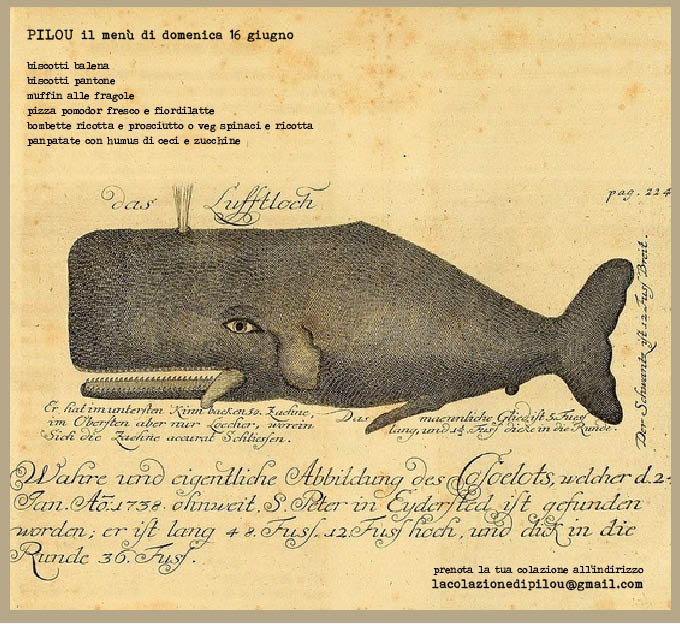 PILOU il menù di domenica 16 giugno
biscotti balena
biscotti pantone
muffin alle fragole
pizza pomodor fresco e fiordilatte
bombette ricotta e prosciutto o veg spinaci e ricotta
panpatate con humus di ceci e zucchine
das Lufftloch
pag. 224
Der Schwantz ist 12 Fuss Breit.
Er hat im untersten Kinn backen 52. Zaehne,
im Obersten aber nur Loecher, worein
Sich die Zaehne accurat Schliessen.
Das maennliche Glied ist 5. Fuss
lang, und 1½ Fuss dicke in die Runde.
Wahre und eigentliche Abbildung des Casoelots, welcher d. 2.
Jan. Ao. 1738. ohnweit, S. Peter in Eydersted ist gefunden
worden; er ist lang 48. Fuss. 12 Fuss hoch, und dick in die
Runde 36. Fuss.
prenota la tua colazione all'indirizzo
lacolazionedipilou@gmail.com